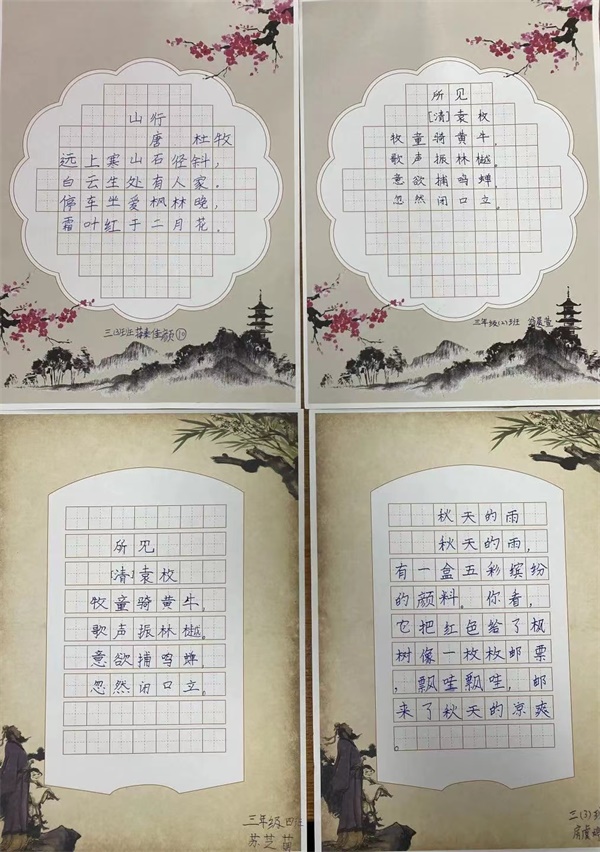 山行
唐 杜牧
远上寒山石径斜，
白云生处有人家。
停车坐爱枫林晚，
霜叶红于二月花。
佳颜
所见
[清]袁枚
牧童骑黄牛，
歌声振林樾。
意欲捕鸣蝉，
忽然闭口立。
三年级(2)班
所见
[清]袁枚
牧童骑黄牛，
歌声振林樾。
意欲捕鸣蝉，
忽然闭口立。
三年级四班
苏芝萌
秋天的雨
秋天的雨，
有一盒五彩缤纷
的颜料。你看，
它把红色给了枫
树像一枚枚邮票
，飘哇飘哇，邮
来了秋天的凉爽
。
三(3)班